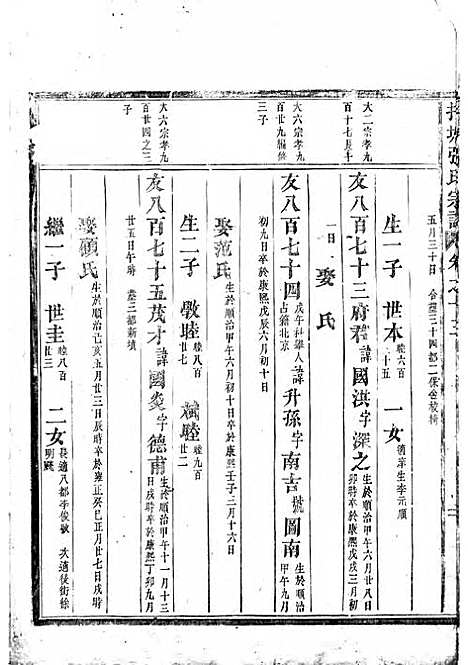 五月三十日 合葬三十四都二保金
生一子 世本 睦六百三十五 一女 適庠生李元順
大二宗孝九百十七長十
友八百七十三府君 諱國洪字深之 生於順治甲午六月廿八日卯時卒於康熙戊戌三月初
一日 娶 氏
大六宗孝九百廿九
三子
友八百七十四 戊午科舉人占籍北京 諱升孫字南吉號圖南 生於順治甲午九月
初九日卒於康熙戊辰六月初十日
娶范氏 生於順治甲午六月初十日卒於康熙壬子三月十六日
生二子 敬睦 睦八百 斌睦 睦九百廿二
大六宗孝九百廿四之三
子
友八百七十五茂才 諱國炎字德甫 生於順治甲午十一月十三日戌時卒於康熙丁卯九月
廿五日午時 葬三都新墳
娶顧氏 生於順治己亥五月廿三日辰時卒於雍正癸巳正月廿七日戌時
繼一子 世圭 睦八百廿三 二女 長適八都李俊號明 次適後街徐